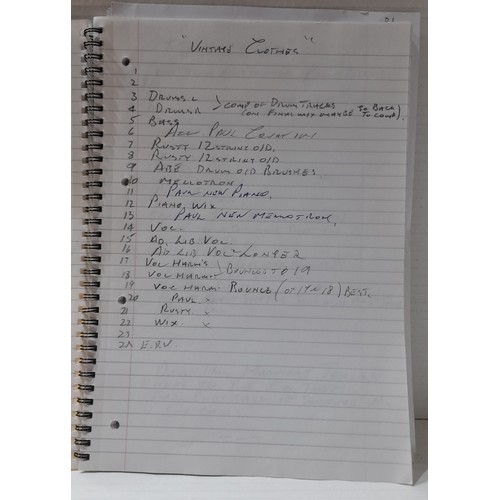 "VINTAGE CLOTHES"
1
2
3 DRUMS L } COMP OF DRUM TRACKS
4 DRUMS R (ON FINAL MIX CHANGE TO BACK TO COMP).
5 BASS
6 ACC PAUL
7 RUSTY 12 STRING O/D.
8 RUSTY 12 STRING O/D
9 ABE DRUM O/D BRUSHES
10 MELLOTRON
11 PAUL NEW PIANO,
12 PIANO, WIX
13 PAUL NEW MELLOTRON,
14 VOC.
15 AD, LIB VOC.
16 AD LIB VOC LONGER
17 VOC HARM'S } BOUNCES TO 19
18 VOC HARM'S
19 VOC HARM BOUNCE (OF 17 & 18) BEST.
20 PAUL. x
21 RUSTY. x
22 WIX. x
23
24